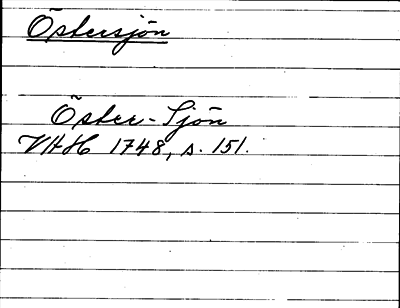 Östersjön
Öster-Sjön
VHH 1748, s. 151.